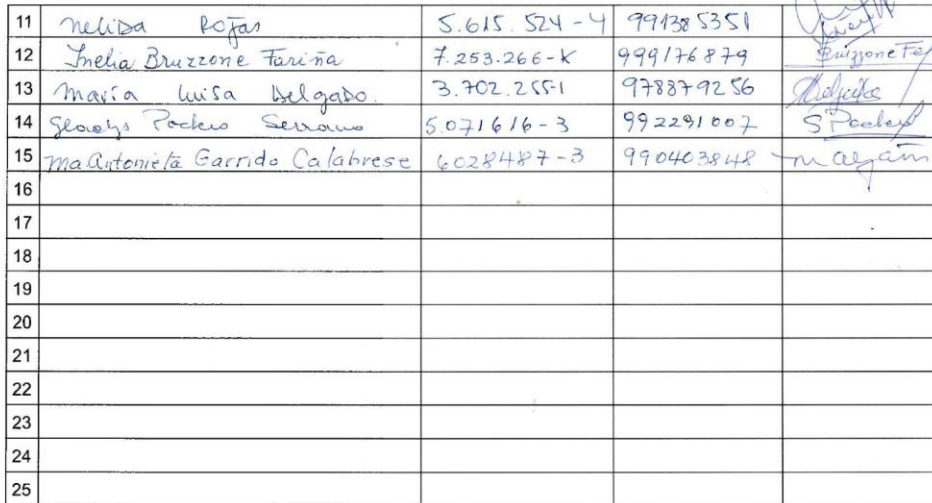 11 Nelida Rojas 5.615.524-4 991385351
12 Inelia Bruzzone Fariña 7.253.266-K 999176879 Bruzzone Fa
13 María Luisa Delgado. 3.702.255-1 978879256
14 Gladys Pocleus Serrano 5.071616-3 992291007
15 Ma Antonieta Garrido Calabrese 6028487-3 990403848
16
17
18
19
20
21
22
23
24
25